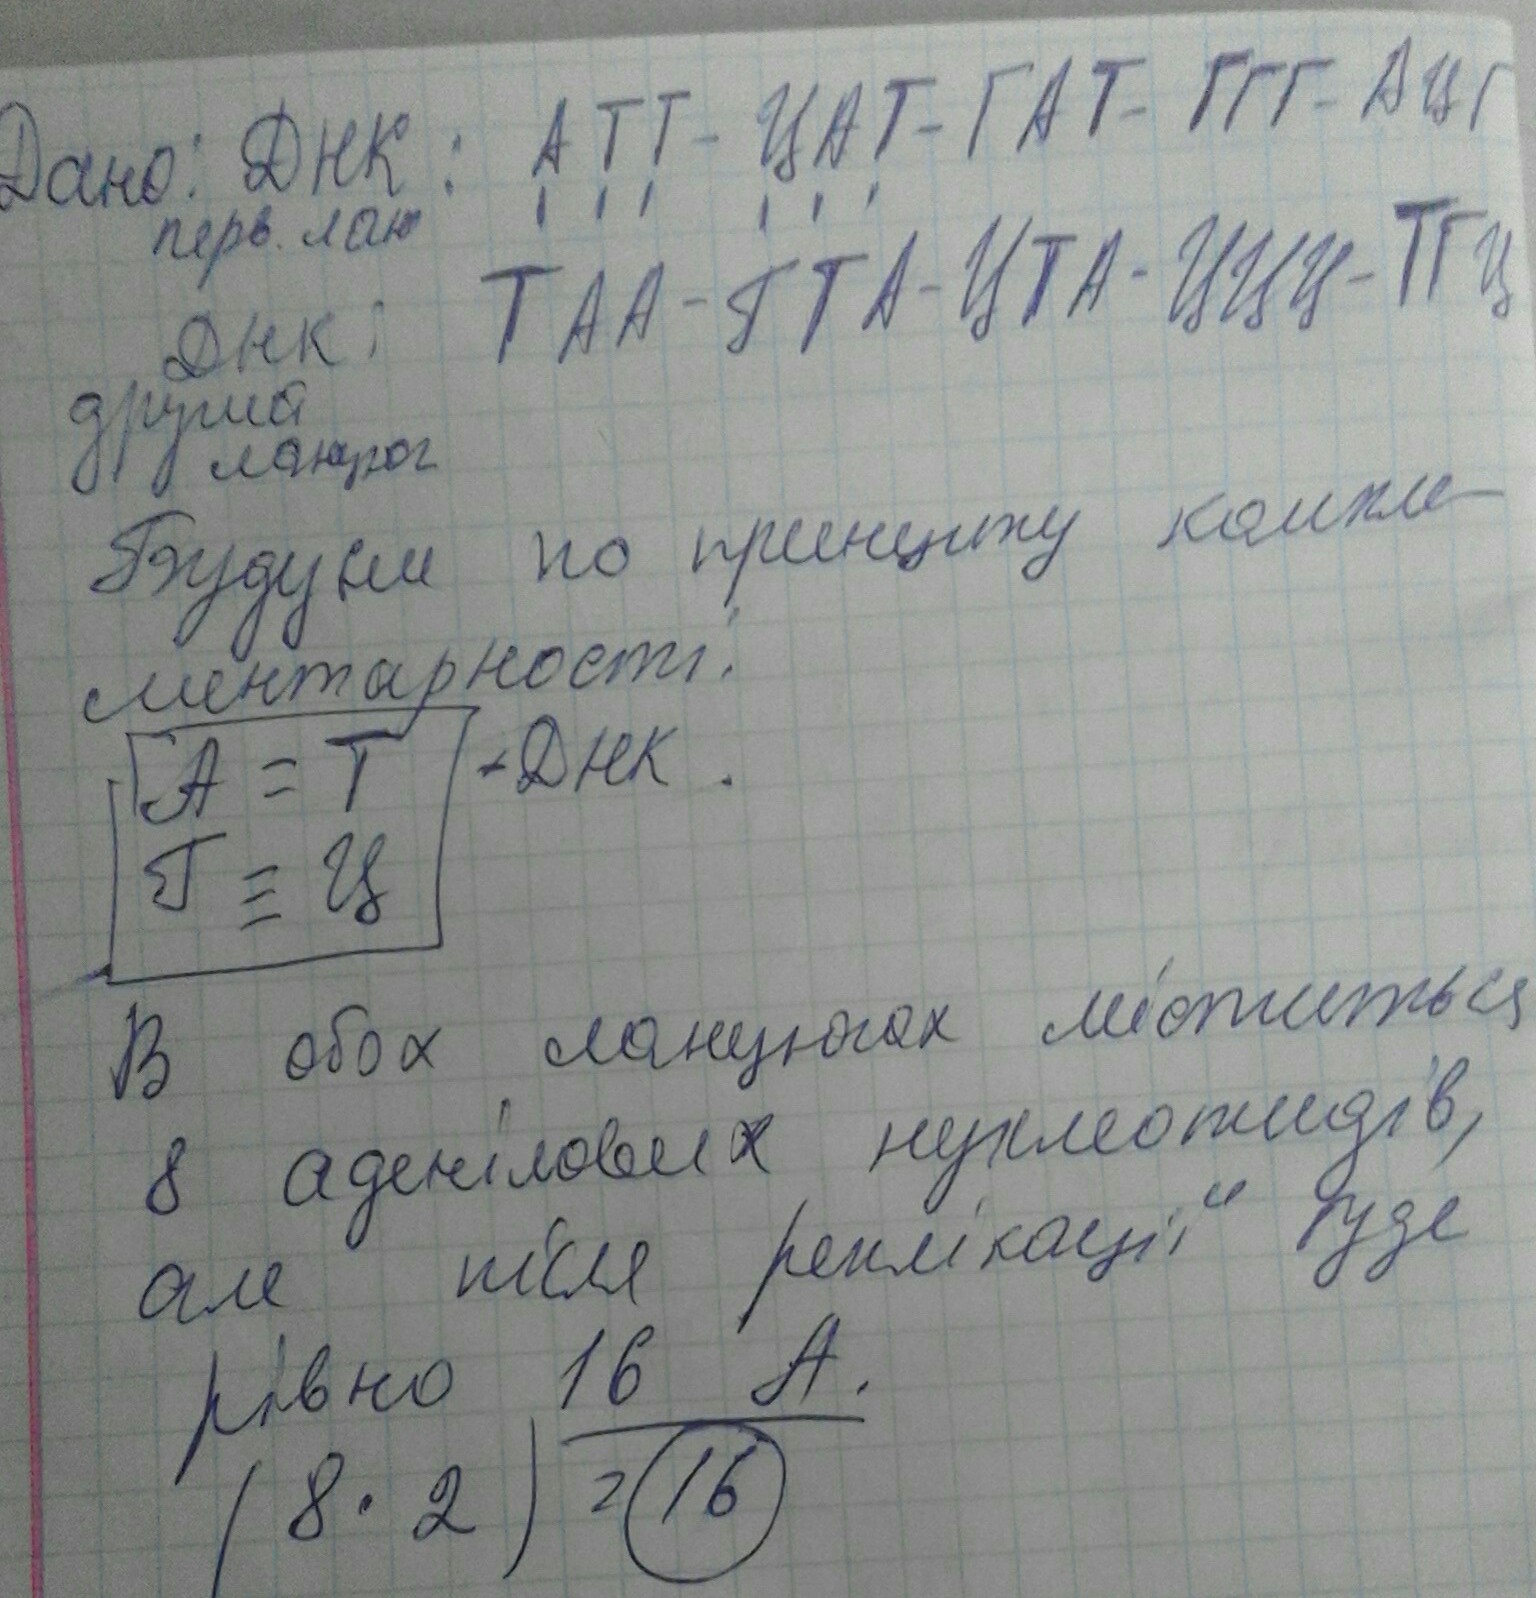 Дано: ДНК: АТТ - ЦАТ - ГАТ - ГГГ - АЦГ
перв. лан
ДНК: ТАА - ГТА - ЦТА - ЦЦЦ - ТГЦ
друга
ланцюг
Будуєм по принципу компле-
ментарності:
А = Т - ДНК.
Г ≡ Ц
В обох ланцюгах міститься
8 аденілових нуклеотидів,
але після реплікації буде
рівно 16 А.
(8 · 2) = 16